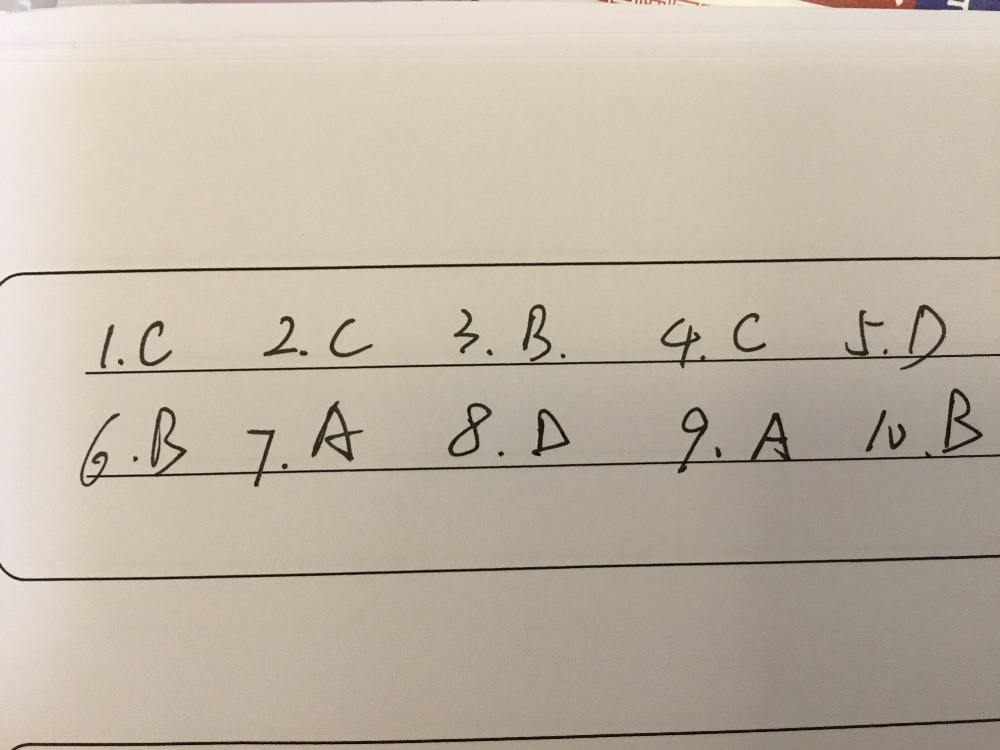 1. C 2. C 3. B. 4. C 5. D
6. B 7. A 8. D 9. A 10. B